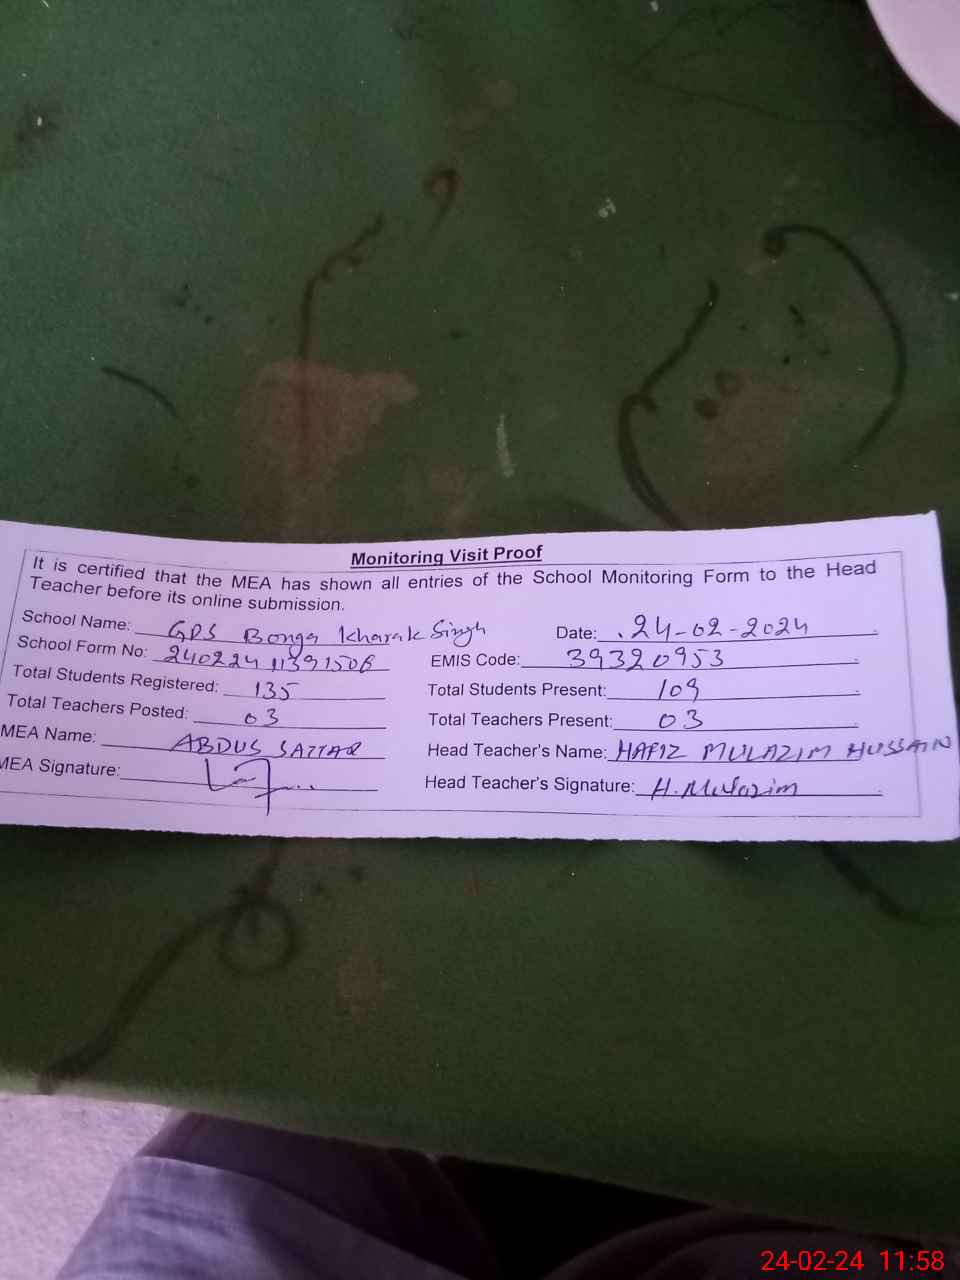 Monitoring Visit Proof
It is certified that the MEA has shown all entries of the School Monitoring Form to the Head
Teacher before its online submission.
School Name: GPS Bonga Kharak Singh Date: 24-02-2024
School Form No: 24022411391506 EMIS Code: 39320953
Total Students Registered: 135 Total Students Present: 109
Total Teachers Posted: 03 Total Teachers Present: 03
MEA Name: ABDUS SATTAR Head Teacher's Name: HAFIZ MULAZIM HUSSAIN
MEA Signature: Head Teacher's Signature: H. Mulazim
24-02-24 11:58